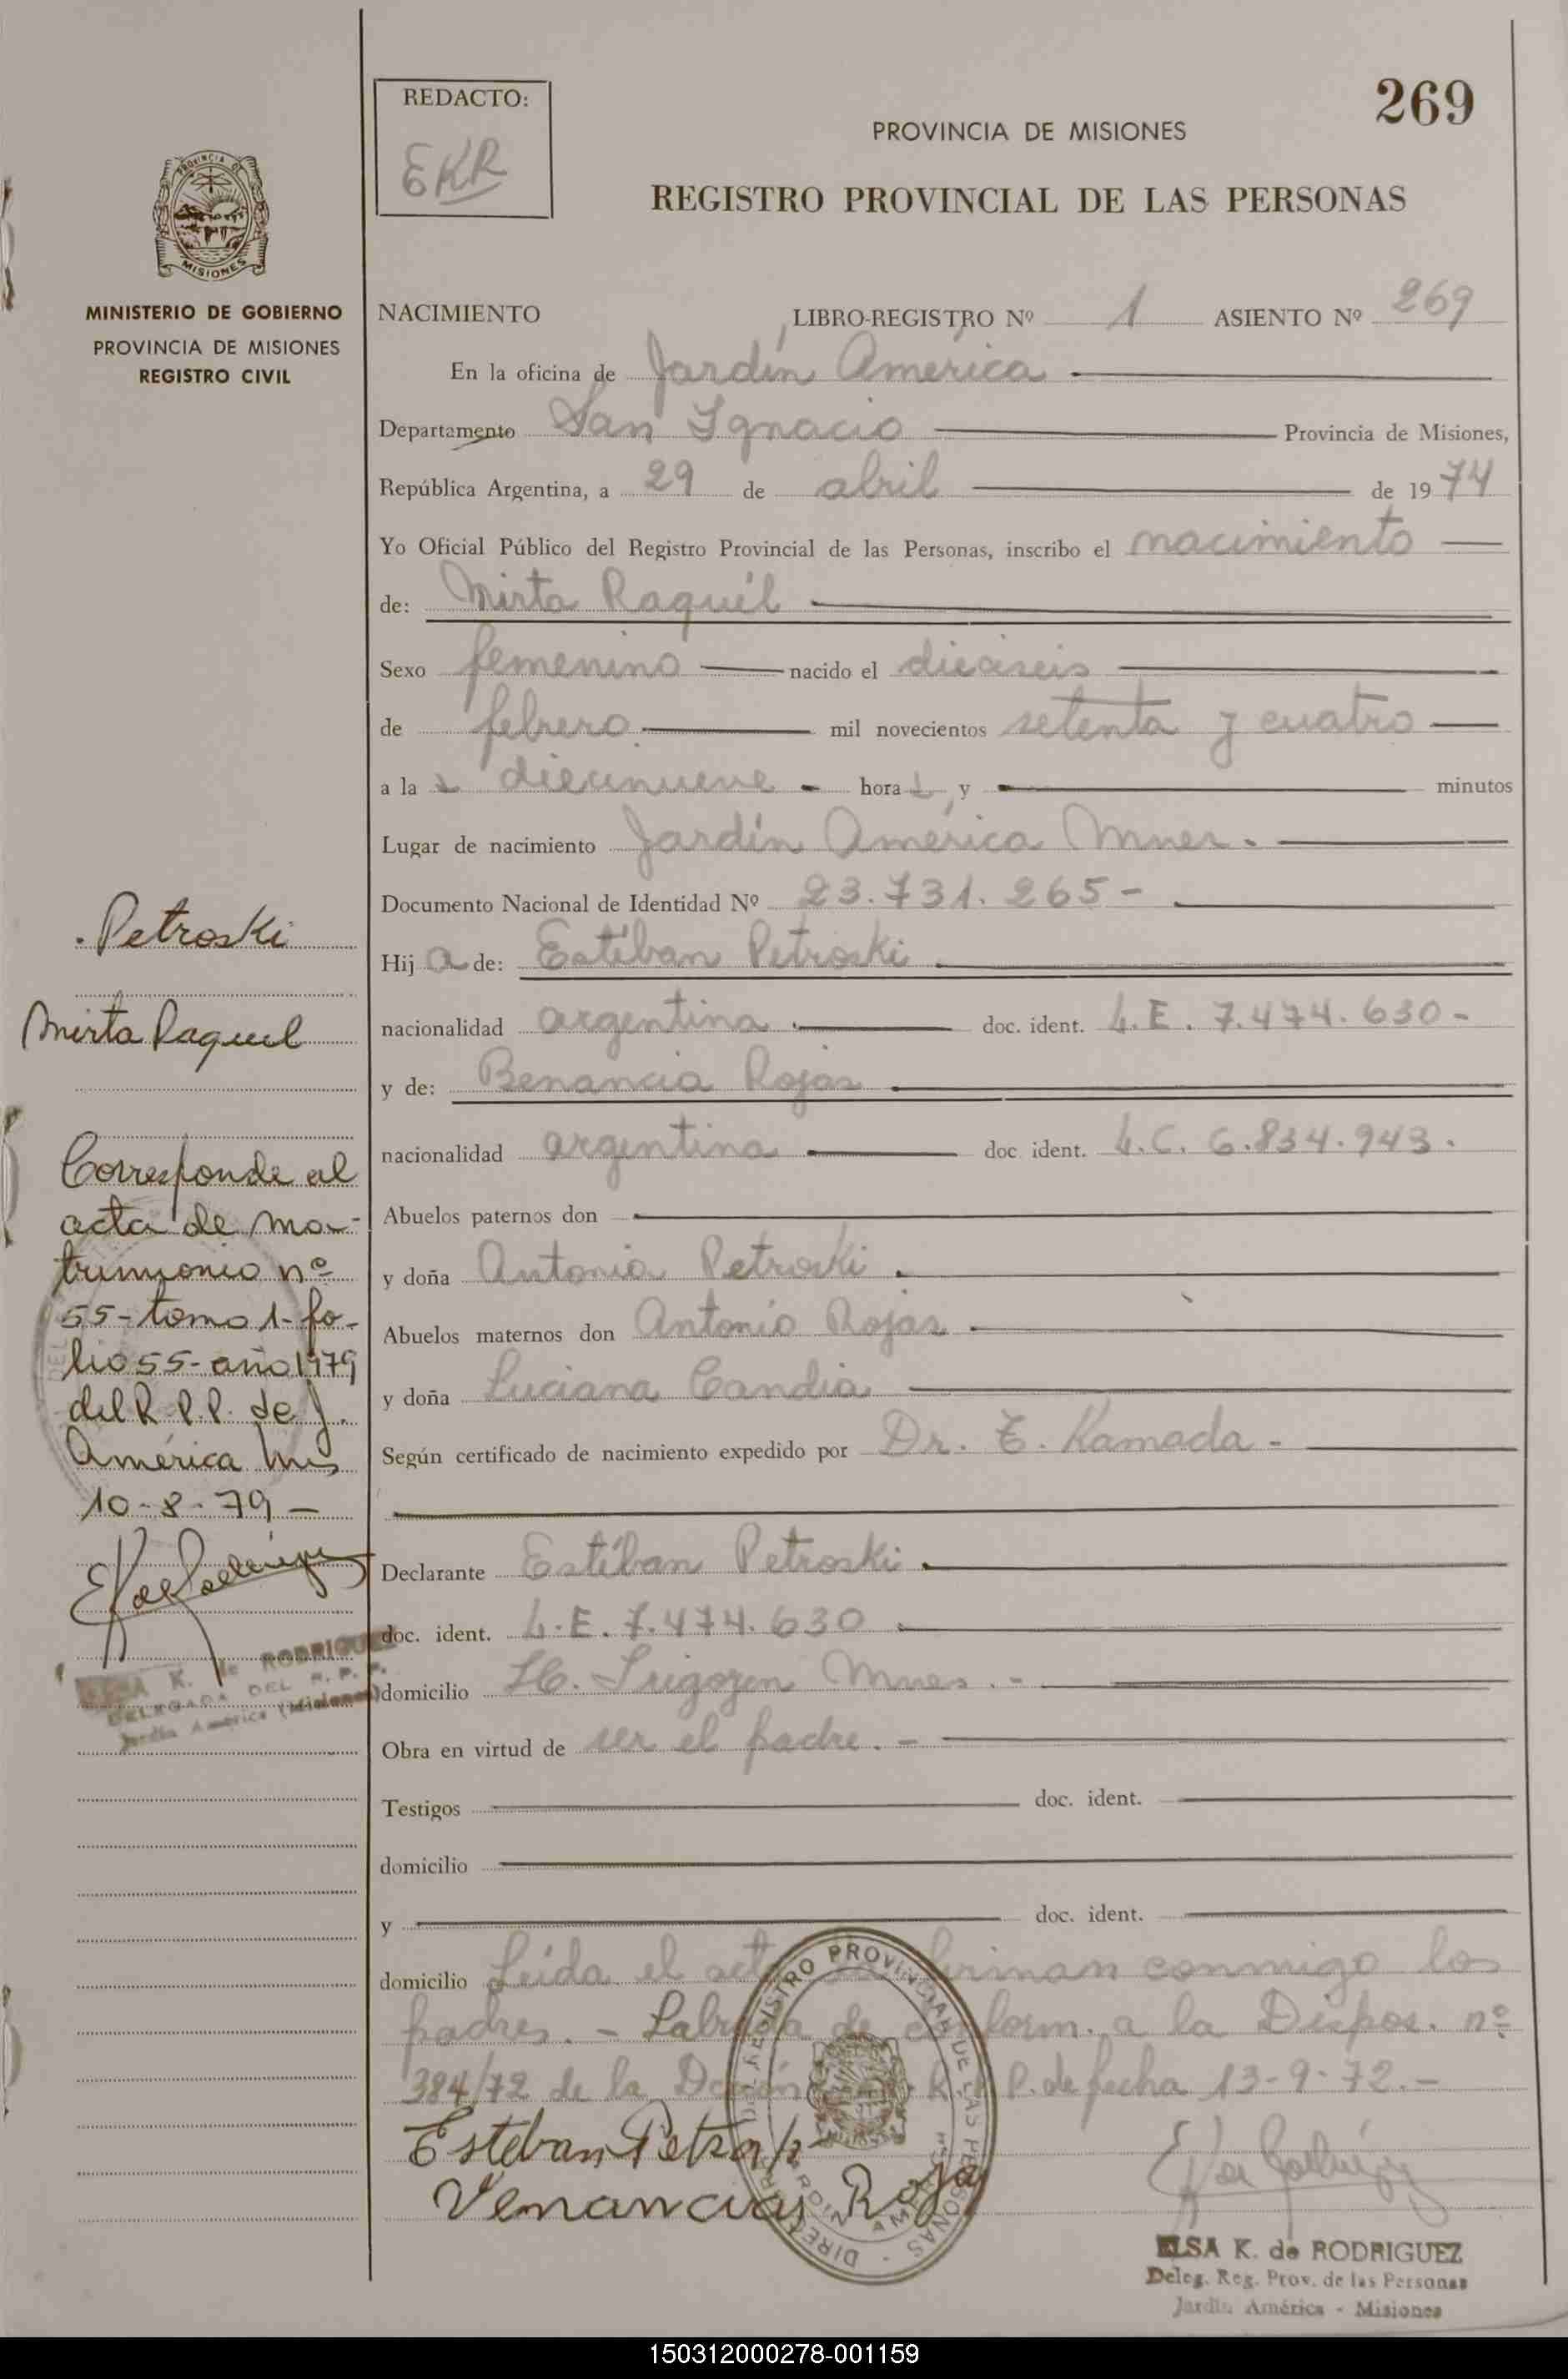 269
REDACTO:
EKR
PROVINCIA DE MISIONES
REGISTRO PROVINCIAL DE LAS PERSONAS
PROVINCIA DE
MISIONES
MINISTERIO DE GOBIERNO
PROVINCIA DE MISIONES
REGISTRO CIVIL
NACIMIENTO LIBRO-REGISTRO Nº 1 ASIENTO Nº 269
En la oficina de Jardín América
Departamento San Ignacio Provincia de Misiones,
República Argentina, a 29 de abril de 1974
Yo Oficial Público del Registro Provincial de las Personas, inscribo el nacimiento
de: Mirta Raquél
Sexo femenino nacido el dieciseis
de febrero mil novecientos setenta y cuatro
a la s diecinueve - hora s y - minutos
Lugar de nacimiento Jardín América Mnes.
Documento Nacional de Identidad Nº 23.731.265-
Hij a de: Estéban Petroski
nacionalidad argentina doc. ident. L.E. 7.474.630-
y de: Benancia Rojas
nacionalidad argentina doc. ident. L.C. 6.834.943.
Abuelos paternos don
y doña Antonia Petroski
Abuelos maternos don Antonio Rojas
y doña Luciana Candia
Según certificado de nacimiento expedido por Dr. T. Kamada-
Declarante Estéban Petroski
doc. ident. L.E. 7.474.630
domicilio H. Irigoyen Mnes.-
Obra en virtud de ser el padre.-
Testigos doc. ident.
domicilio
y doc. ident.
domicilio Leída el acta firman conmigo los
padres.- Labrada de conform. a la Dispos. nº
384/72 de la R. P. de fecha 13-9-72.-
Esteban Petroski
Venancias Roja
ELSA K. de RODRIGUEZ
Deleg. Reg. Prov. de las Personas
Jardín América - Misiones
Petroski
Mirta Raquel
Corresponde al
acta de ma-
trimonio nº
55-tomo 1-fo-
lio 55-año 1979
del R.P.P. de J.
América Mns
10-8-79-
ELSA K. de RODRIGUEZ
DELEGADA DEL R. P. P.
Jardín América (Misiones)
DIREC REGISTRO PROVINCIAL DE LAS PERSONAS
JARDIN AMERICA
150312000278-001159